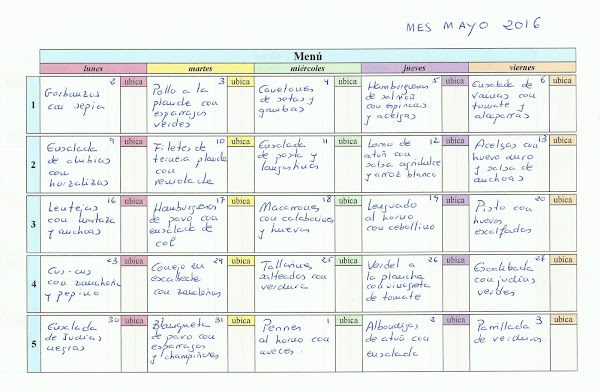 MES MAYO 2016
Menú
lunes martes miércoles jueves viernes
1
2 ubica
Garbanzos
con sepia
3 ubica
Pollo a la
planche con
esparragos
verdes
4 ubica
Canelones
de setas y
gambas
5 ubica
Hamburguesas
de salmón
con espinacas
y acelgas
6 ubica
Ensalada de
vainas con
tomate y
alcaparras
2
9 ubica
Ensalada
de alubias
con
hortalizas
10 ubica
Filetes de
ternera plancha
con
remolacha
11 ubica
Ensalada
de pasta y
langostinos
12 ubica
Lomo de
atún con
salsa agridulce
y arroz blanco
13 ubica
Acelgas con
huevo duro
y salsa de
anchoas
3
16 ubica
Lentejas
con mostaza
y anchoas
17 ubica
Hamburguesas
de pavo con
ensalada de
col
18 ubica
Macarrones
con calabacines
y huevos
19 ubica
Lenguado
al horno
con cebollino
20 ubica
Pisto con
huevos
escalfados
4
23 ubica
Cus-cus
con zanahoria
y pepino
24 ubica
Conejo en
escabeche
con zanahorias
25 ubica
Tallarines
salteados con
verdura
26 ubica
Verdel a
la plancha
con vinagreta
de tomate
27 ubica
Escalibada
con judías
verdes
5
30 ubica
Ensalada
de Judías
negras
31 ubica
Blanqueta
de pavo con
esparragos
y champiñones
1 ubica
Pennes
al horno con
nueces.
2 ubica
Albondigas
de atún con
ensalada
3 ubica
Parrillada
de verduras